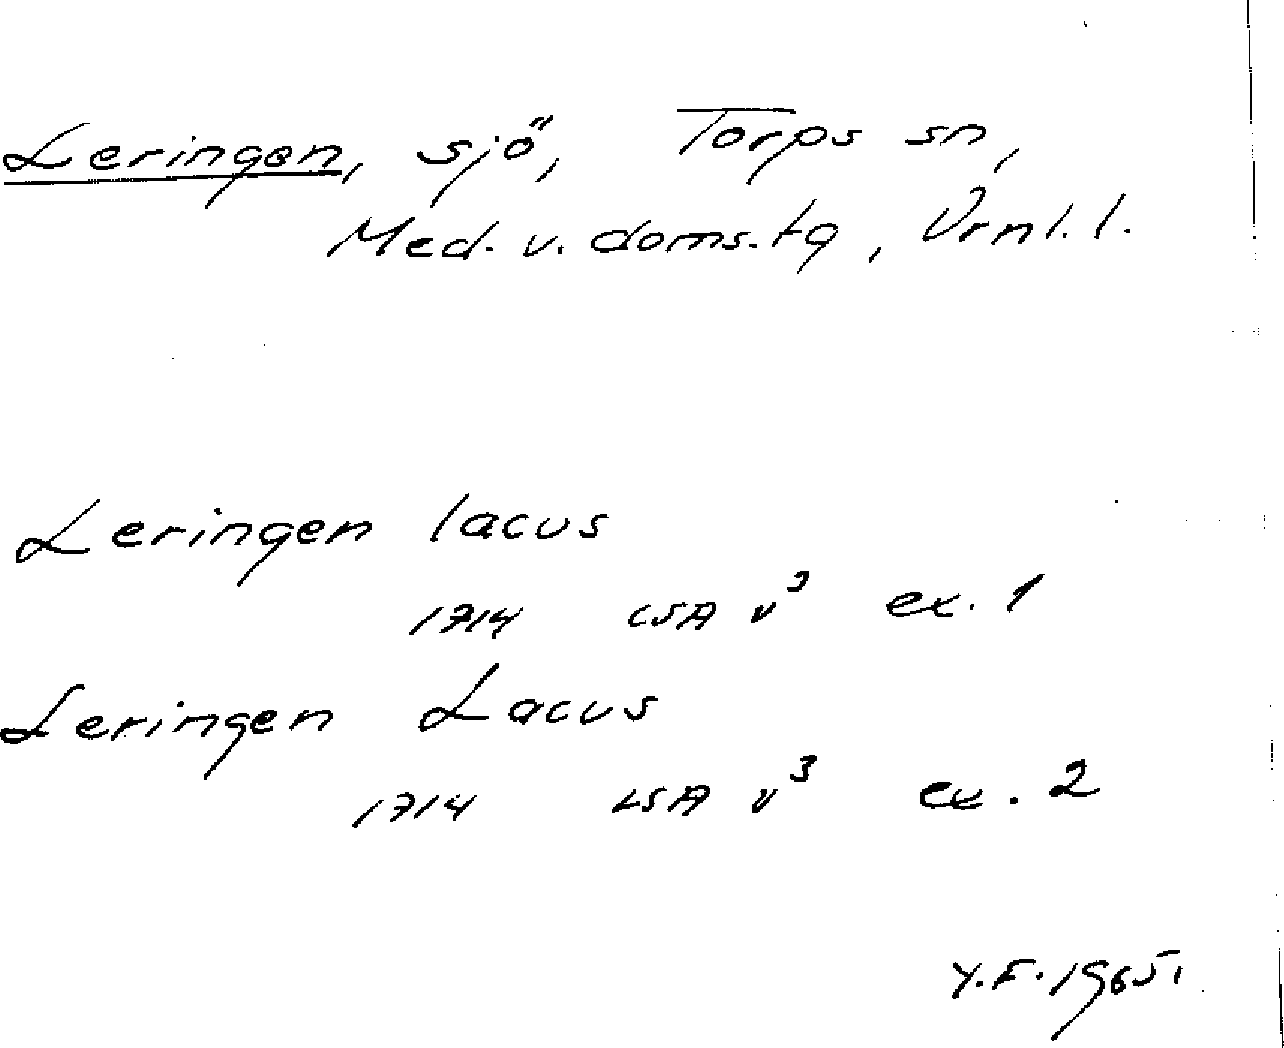 Leringen, sjö, Torps sn,
Med. v. doms.tg, Vrnl. l.
Leringen lacus
1714 LSA v³ ex. 1
Leringen Lacus
1714 LSA v³ ex. 2
Y.F. 1965.